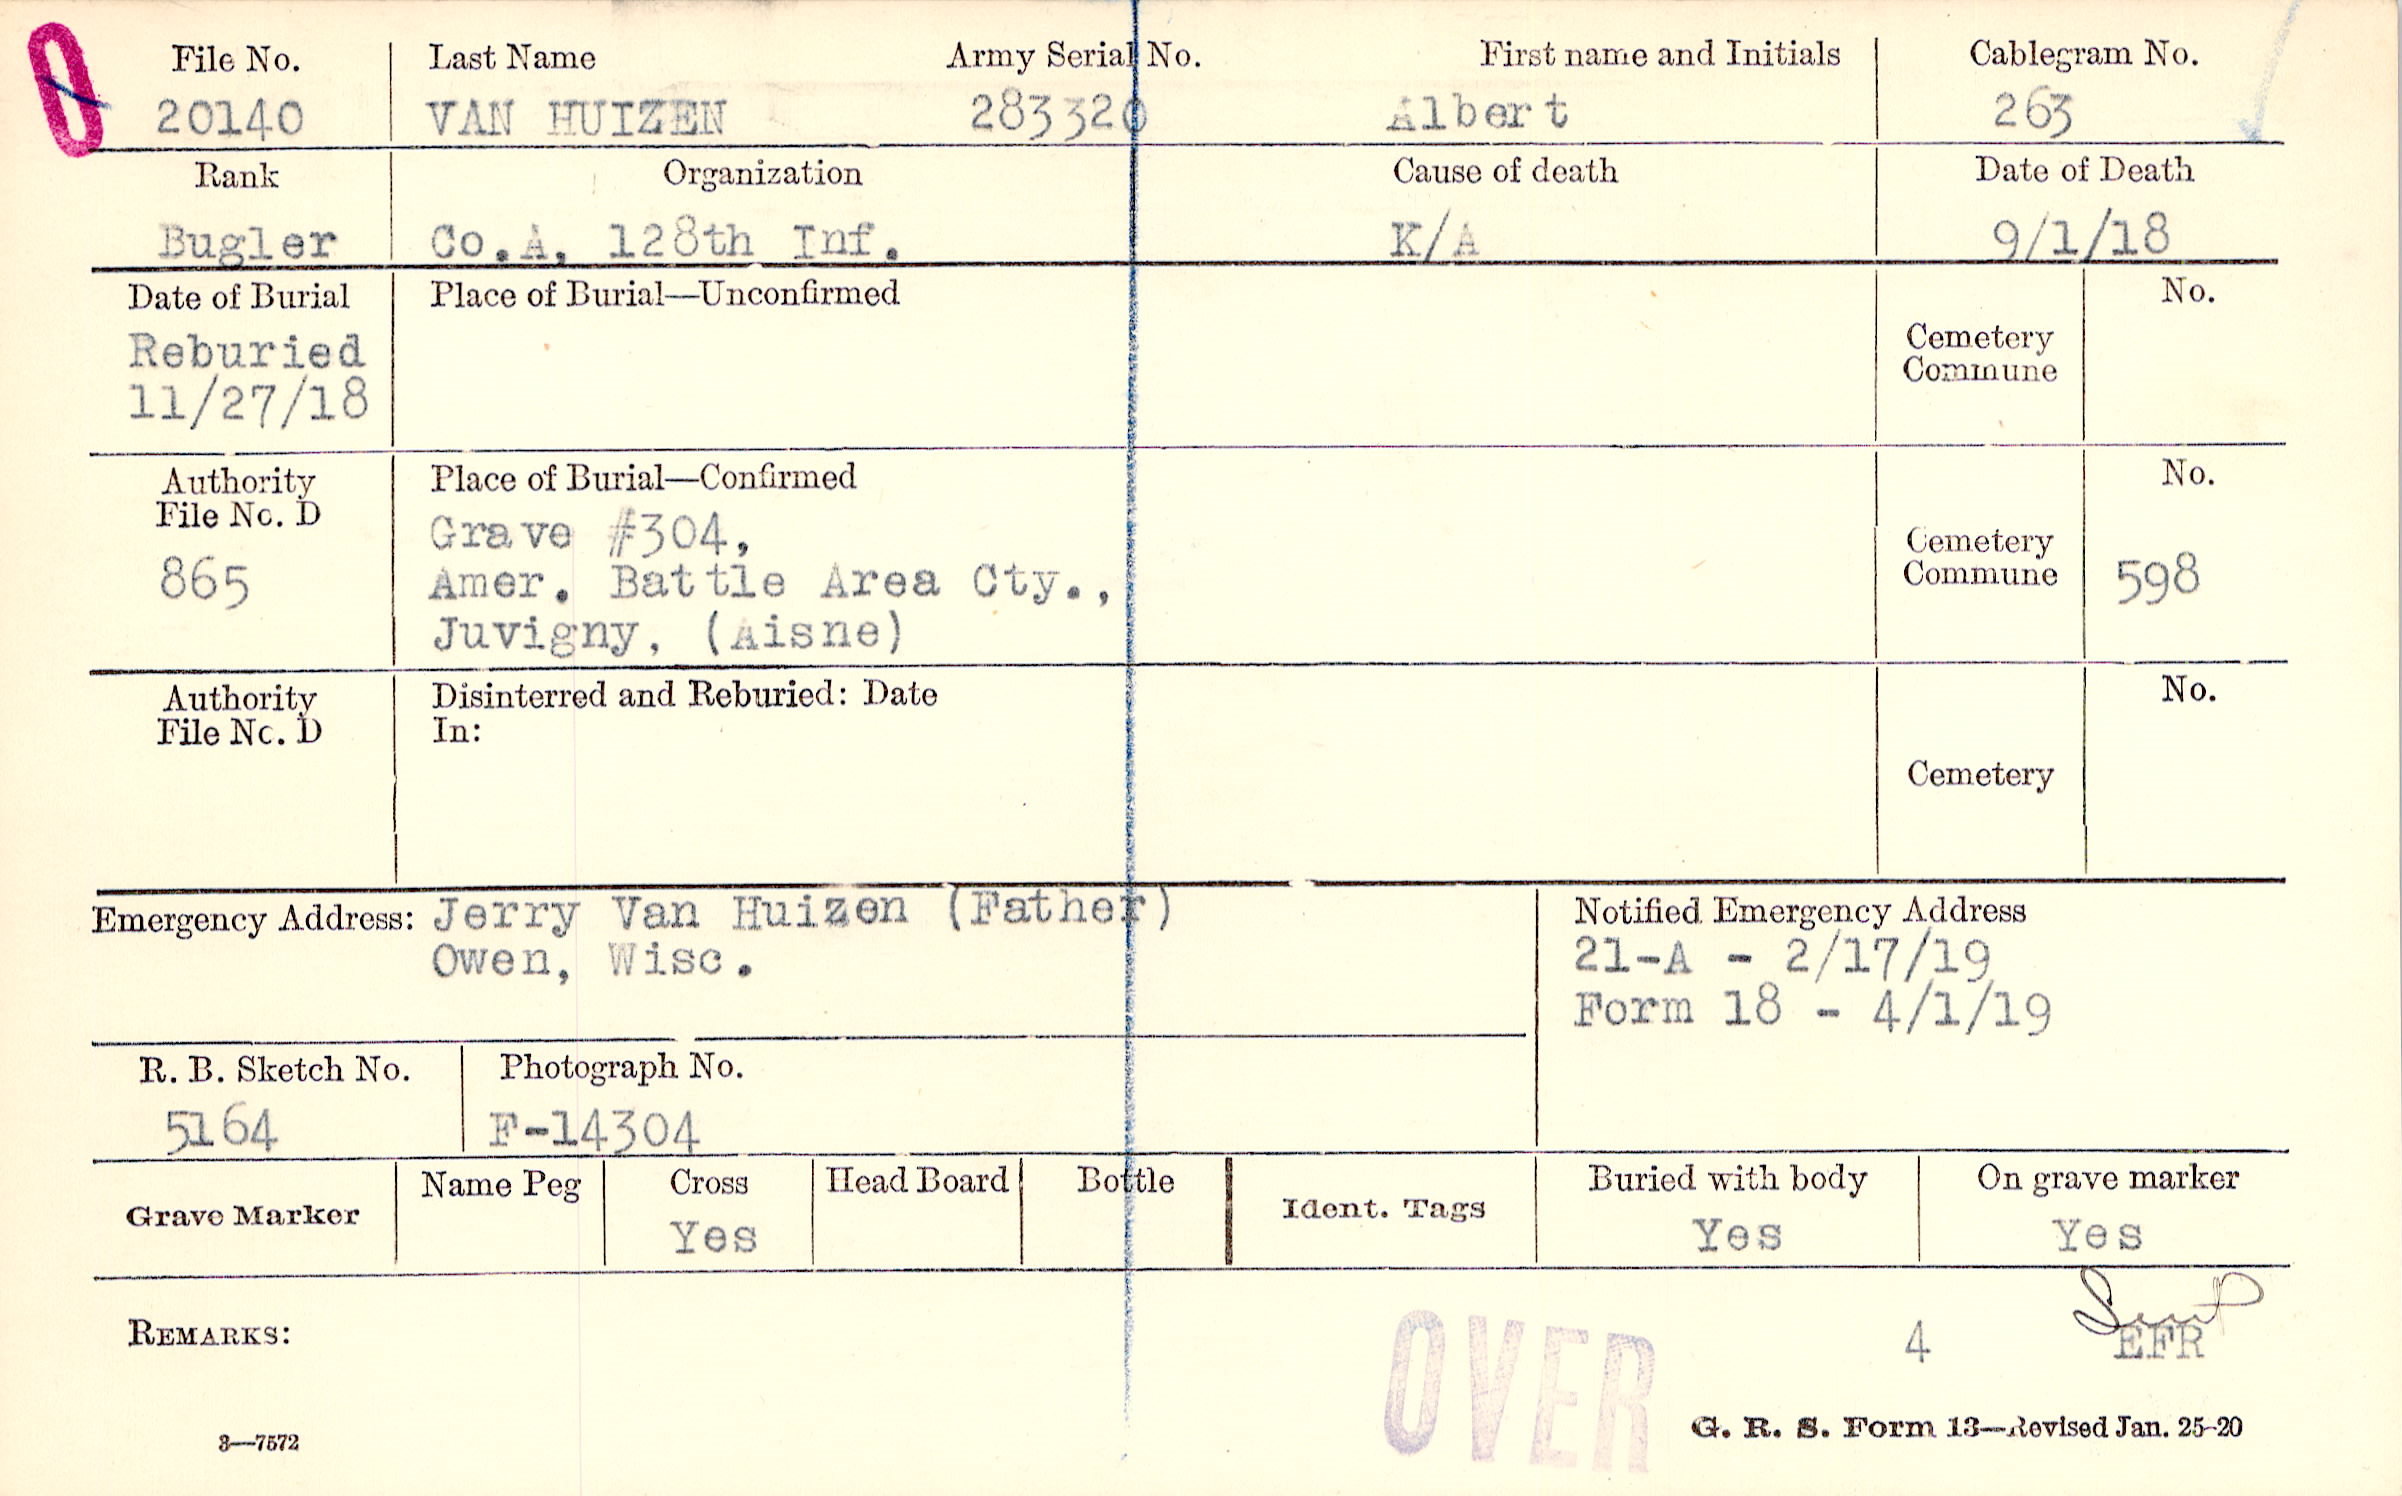 0
File No. Last Name Army Serial No. First name and Initials Cablegram No.
20140 VAN HUIZEN 283320 Albert 263
Rank Organization Cause of death Date of Death
Bugler Co.A, 128th Inf. K/A 9/1/18
Date of Burial Place of Burial—Unconfirmed No.
Reburied
11/27/18
Cemetery
Commune
Authority
File No. D
865
Place of Burial—Confirmed
Grave #304,
Amer. Battle Area Cty.,
Juvigny, (Aisne)
Cemetery
Commune
No.
598
Authority
File No. D
Disinterred and Reburied: Date
In:
Cemetery
No.
Emergency Address: Jerry Van Huizen (Father)
Owen, Wisc.
Notified Emergency Address
21-A - 2/17/19
Form 18 - 4/1/19
R. B. Sketch No. Photograph No.
5164 F-14304
Grave Marker
Name Peg Cross Head Board Bottle
Yes
Ident. Tags
Buried with body On grave marker
Yes Yes
REMARKS:
OVER
4 EFR
3—7572
G. R. S. Form 13—Revised Jan. 25-20